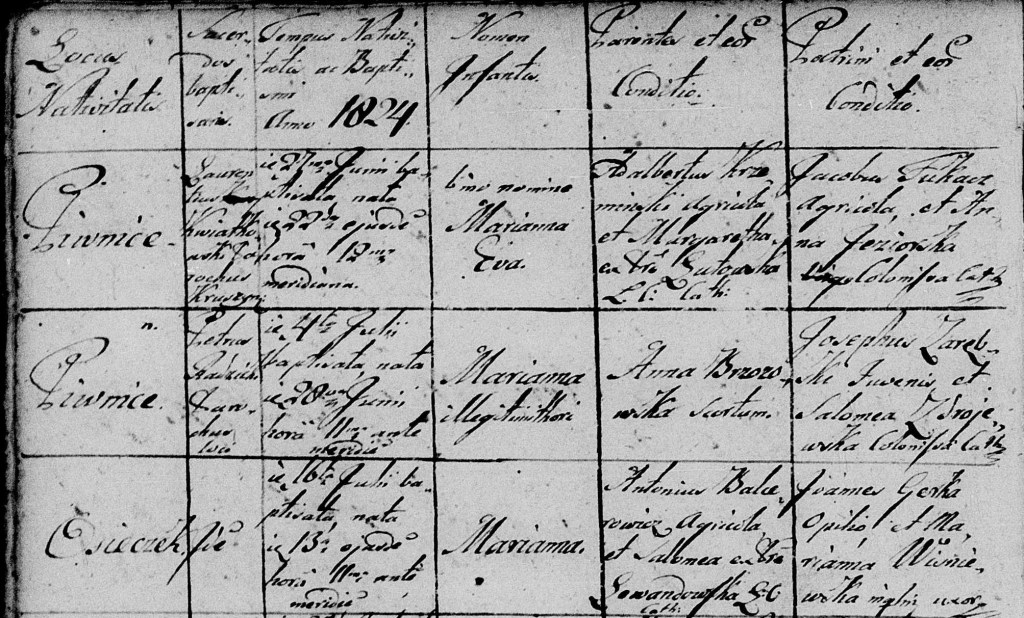 Locus
Nativitatis
Sacer-
dos
bapti-
sans.
Tempus Nativi-
tatis ac Bapti-
smi
Anno 1824.
Nomen
Infantis.
Parentes et eor
Conditio.
Patrini et eor
Conditio.
Piwnice.
Lauren
tius
Kwiatko
wski Pa
rochus
Kruszyn:
ie 27ma Junii ba-
ptisata nata
ie 22da ejusde
hora 12ma
meridiana.
bino nomine
Marianna
Eva.
Adalbertus Krze
minski Agricola
et Margaretha
ex Tre Lutowska
L. C. Cath:
Jacobus Tukacz
Agricola, et An-
na Jeziorska
Colonissa Cath
n.
Piwnice.
Petrus
Paro-
chus
ie 4ta Julii
baptisata nata
ie 28va Junii
hora 11ma ante
meridie
Marianna
illegitimi thori
Anna Brzozo-
wska scortum.
Josephus Zareb-
ski Juvenis et
Salomea Zdroje
wska Colonissa Cath
Osieczek,
sie
ie 16ta Julii ba-
ptisata nata
ie 13a ejusde
hora 11ma ante
meridie
Marianna.
Antonius Balce
rowicz Agricola
et Salomea ex Tre
Lewandowska L. C
Cath:
Joannes Gerka
Opilio et Ma
rianna Wisnie-
wska uxor